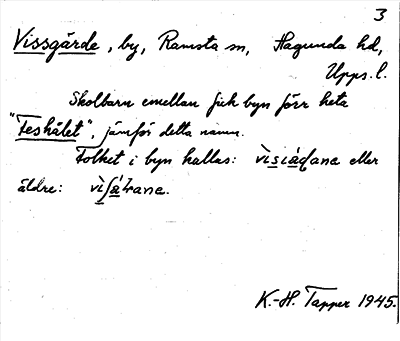 3
Vissgärde, by, Ramsta sn, Hagunda hd,
Upps. l.
Skolbarn emellan fick byn förr heta
"Feshålet", jämför detta namn.
Folket i byn kallas: eller
äldre:
K.-H. Tapper 1945.